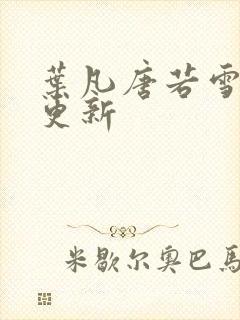 葉凡唐若雪
更新
米歇尔奥巴馬